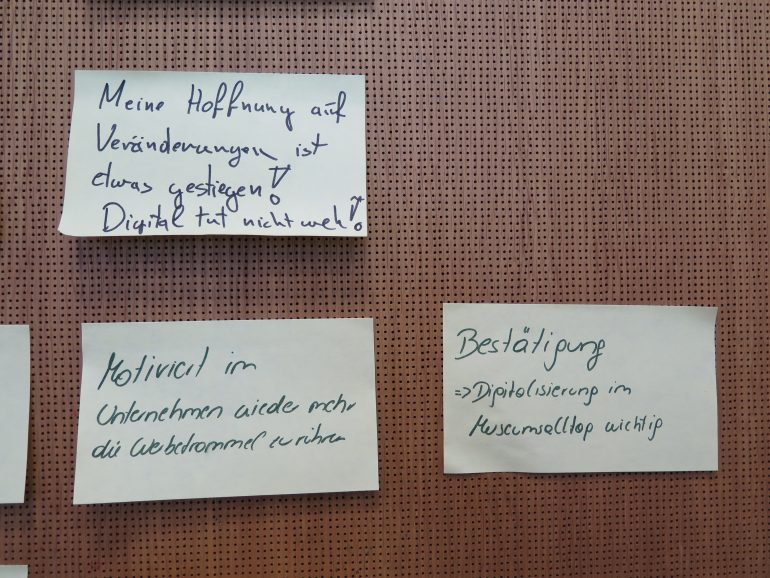 Meine Hoffnung auf
Veränderungen ist
etwas gestiegen!
Digital tut nicht weh!
Motiviert im
Unternehmen wieder mehr
die Werbetrommel zu rühren
Bestätigung
=> Digitalisierung im
Museumsalltag wichtig